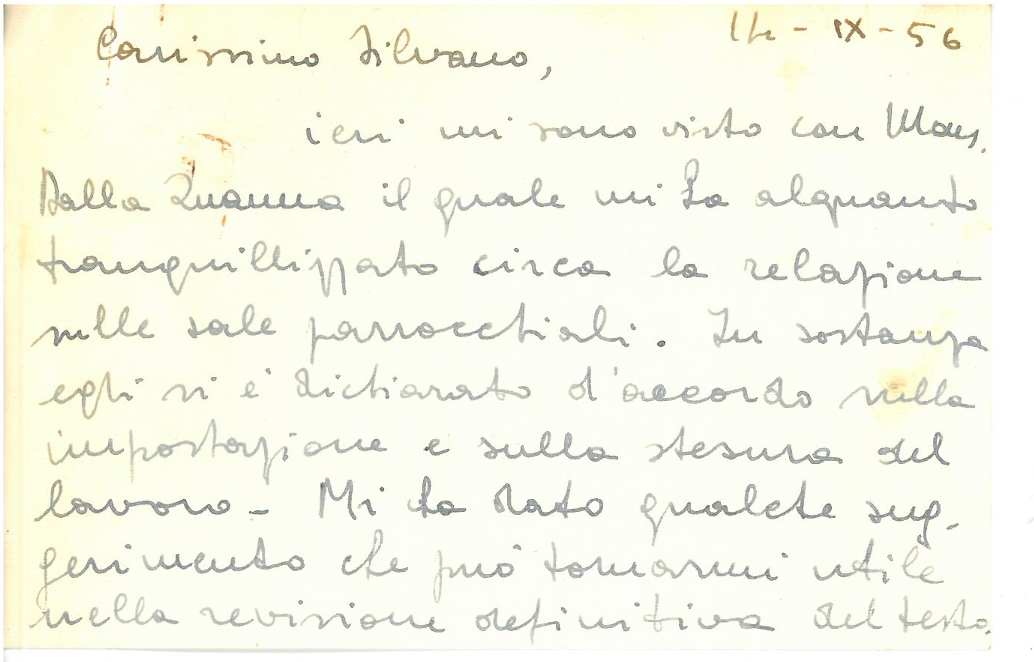 14-IX-56
Carissimo Silvano,
ieri mi sono visto con Mons.
Dalla Zuanna il quale mi ha alquanto
tranquillizzato circa la relazione
sulle sale parrocchiali. In sostanza
egli si è dichiarato d'accordo sulla
impostazione e sulla stesura del
lavoro - Mi ha dato qualche sug-
gerimento che può tornarmi utile
nella revisione definitiva del testo.